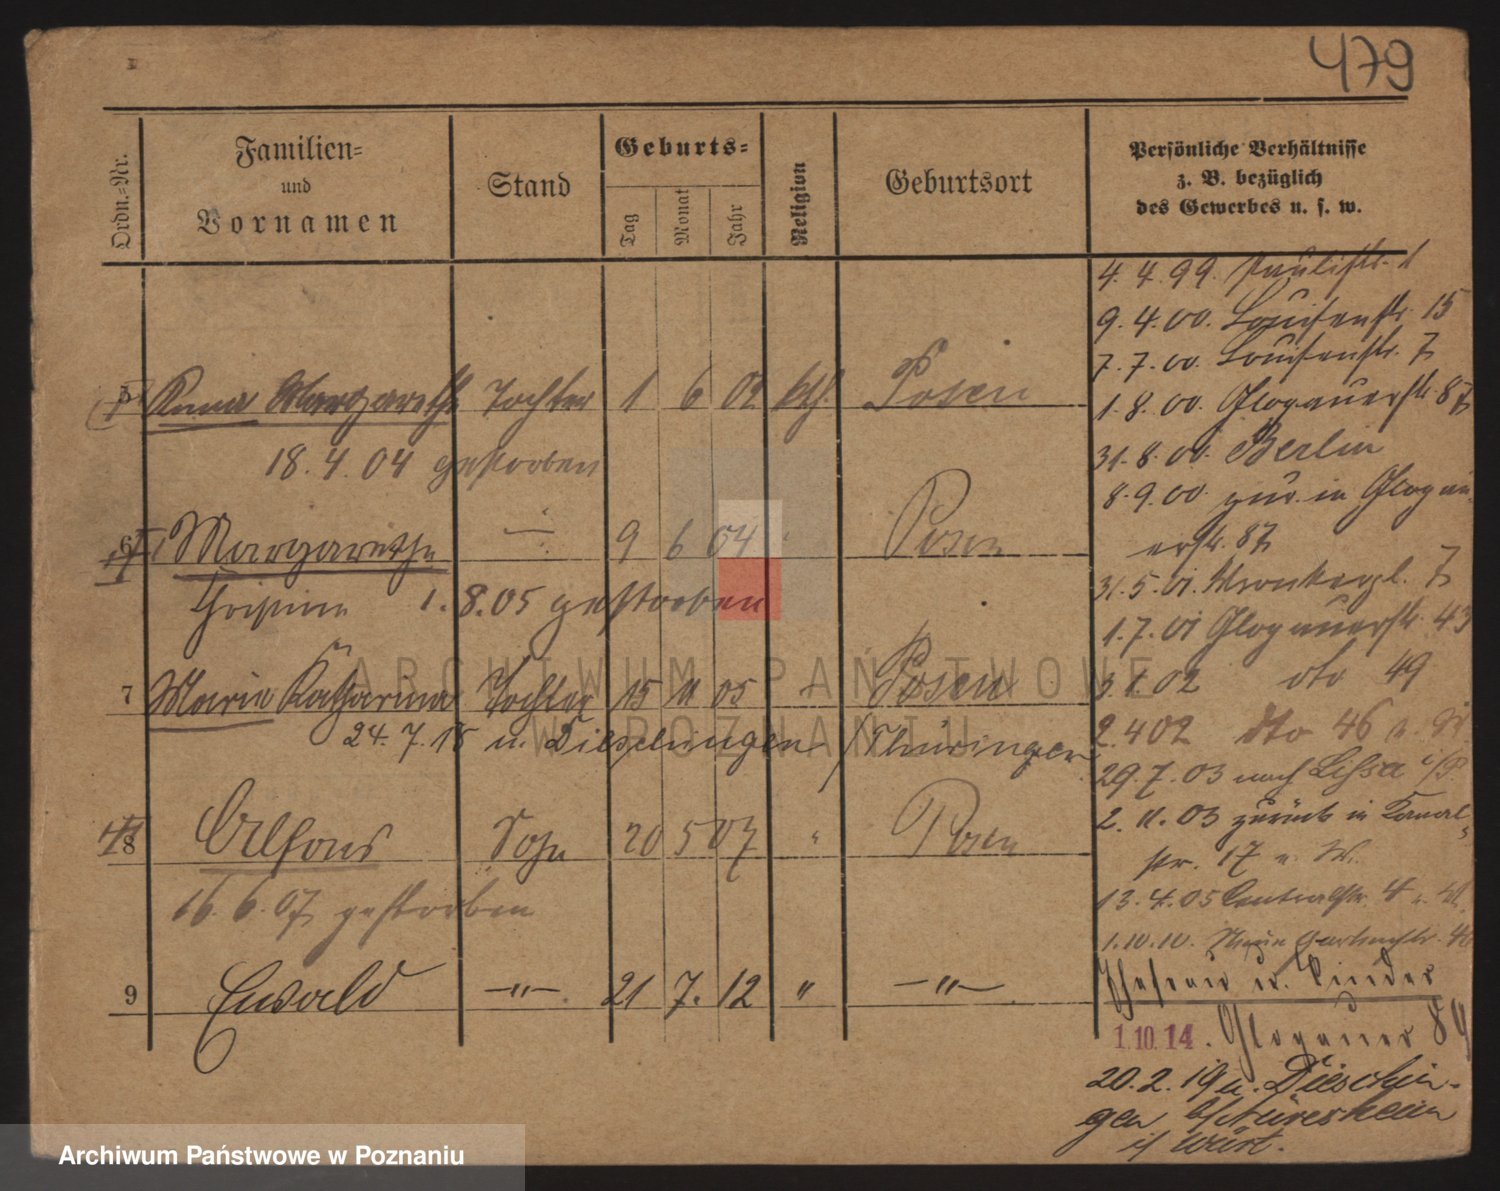 479
Ordn.-Nr.
Familien-
und
Vornamen
Stand
Geburts-
Tag
Monat
Jahr
Religion
Geburtsort
Persönliche Verhältnisse
z. B. bezüglich
des Gewerbes u. s. w.
5 Anna Margarethe Tochter 1 6 02 kth. Posen
18.4.04 gestorben
6 Margarethe 9 6 04 Posen
1.8.05 gestorben
7 Maria Katharina Tochter 15 11 05 Posen
24.7.18 n. Dieschingen / Thüringen
8 Alfons Sohn 20 5 07 " Posen
16.6.07 gestorben
9 Ewald —"— 21 7. 12 " —"—
4.4.99. Paulistr. 1
9.4.00. Louisenstr. 15
7.7.00. Louisenstr. 7
1.8.00. Glogauerstr. 87
31.8.00. Berlin
8.9.00. zur. in Glogau-
erstr. 87
31.5.01. Wronkerpl. 7
1.7.01 Glogauerstr. 43
3.1.02 dto 49
2.4.02 dto 46
29.7.03 nach Lissa i/P
2.11.03 zurück in Kanal-
str. 17 n. W.
13.4.05 Centralstr. 4
1.10.10. Neue Gartenstr.
Ehefrau u. Kinder
1.10.14. Glogauer 84
20.2.19 n. Dieschin-
gen
i/ Würt.
ARCHIWUM PAŃSTWOWE
W POZNANIU
Archiwum Państwowe w Poznaniu